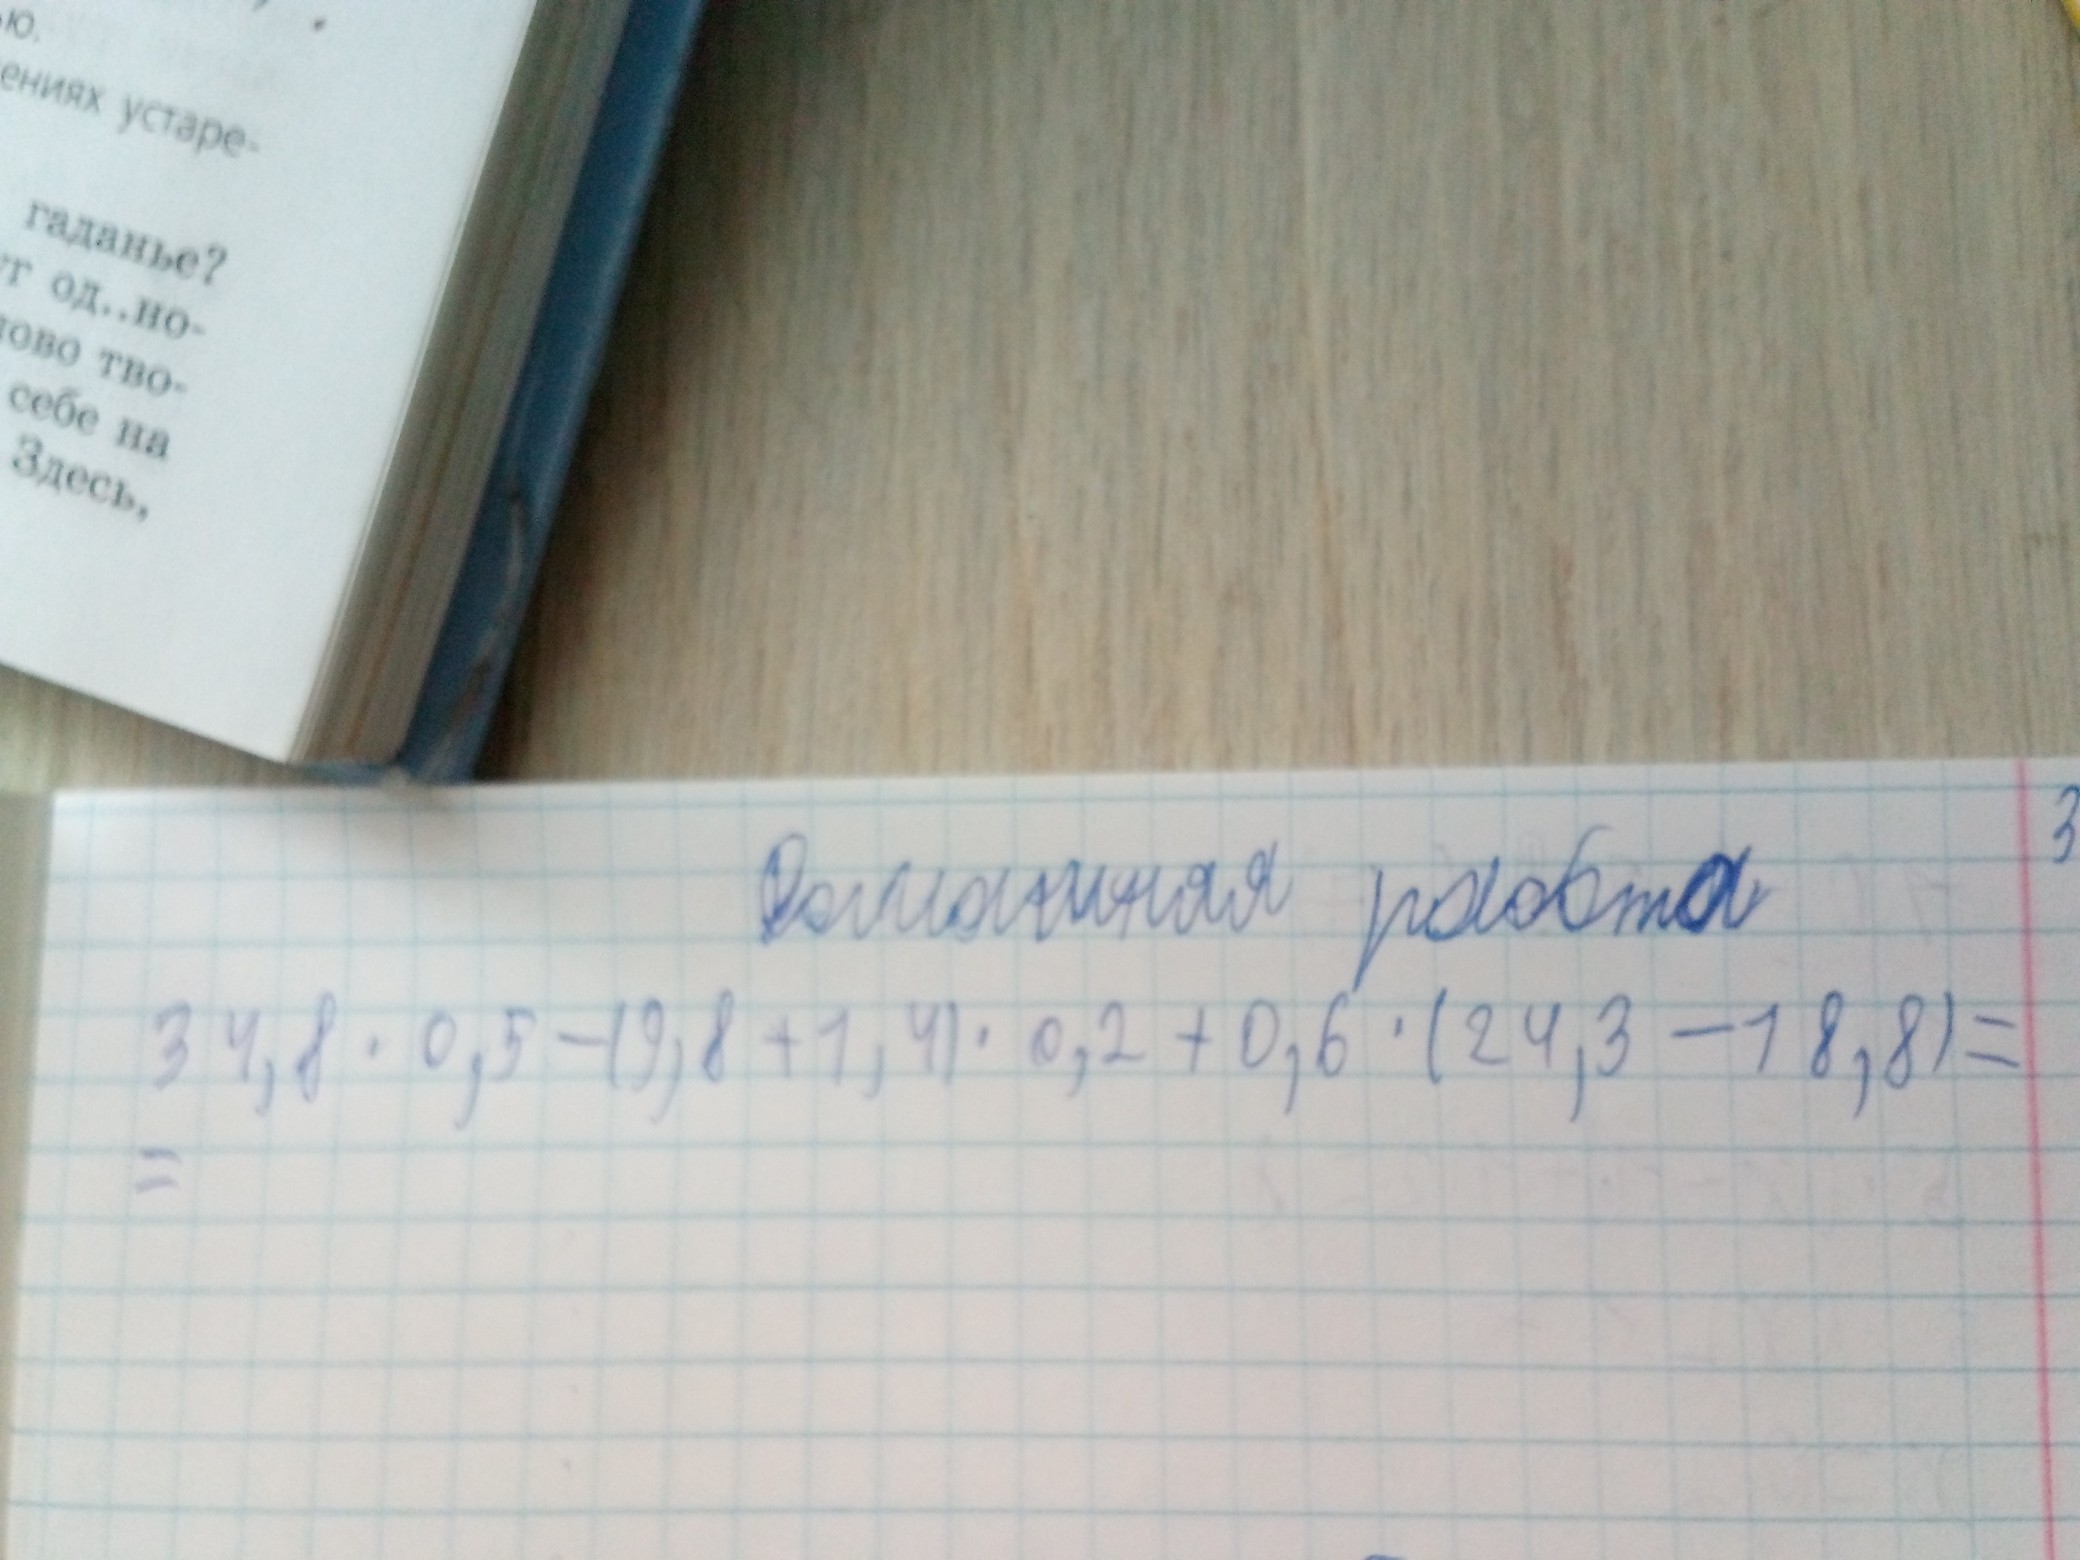 ью.
ениях устаре-
гаданье?
ут од..но-
лово тво-
себе на
Здесь,
Домашняя работа
3
34,8 · 0,5 - (9,8 + 1,4) · 0,2 + 0,6 · (24,3 - 18,8) =
=